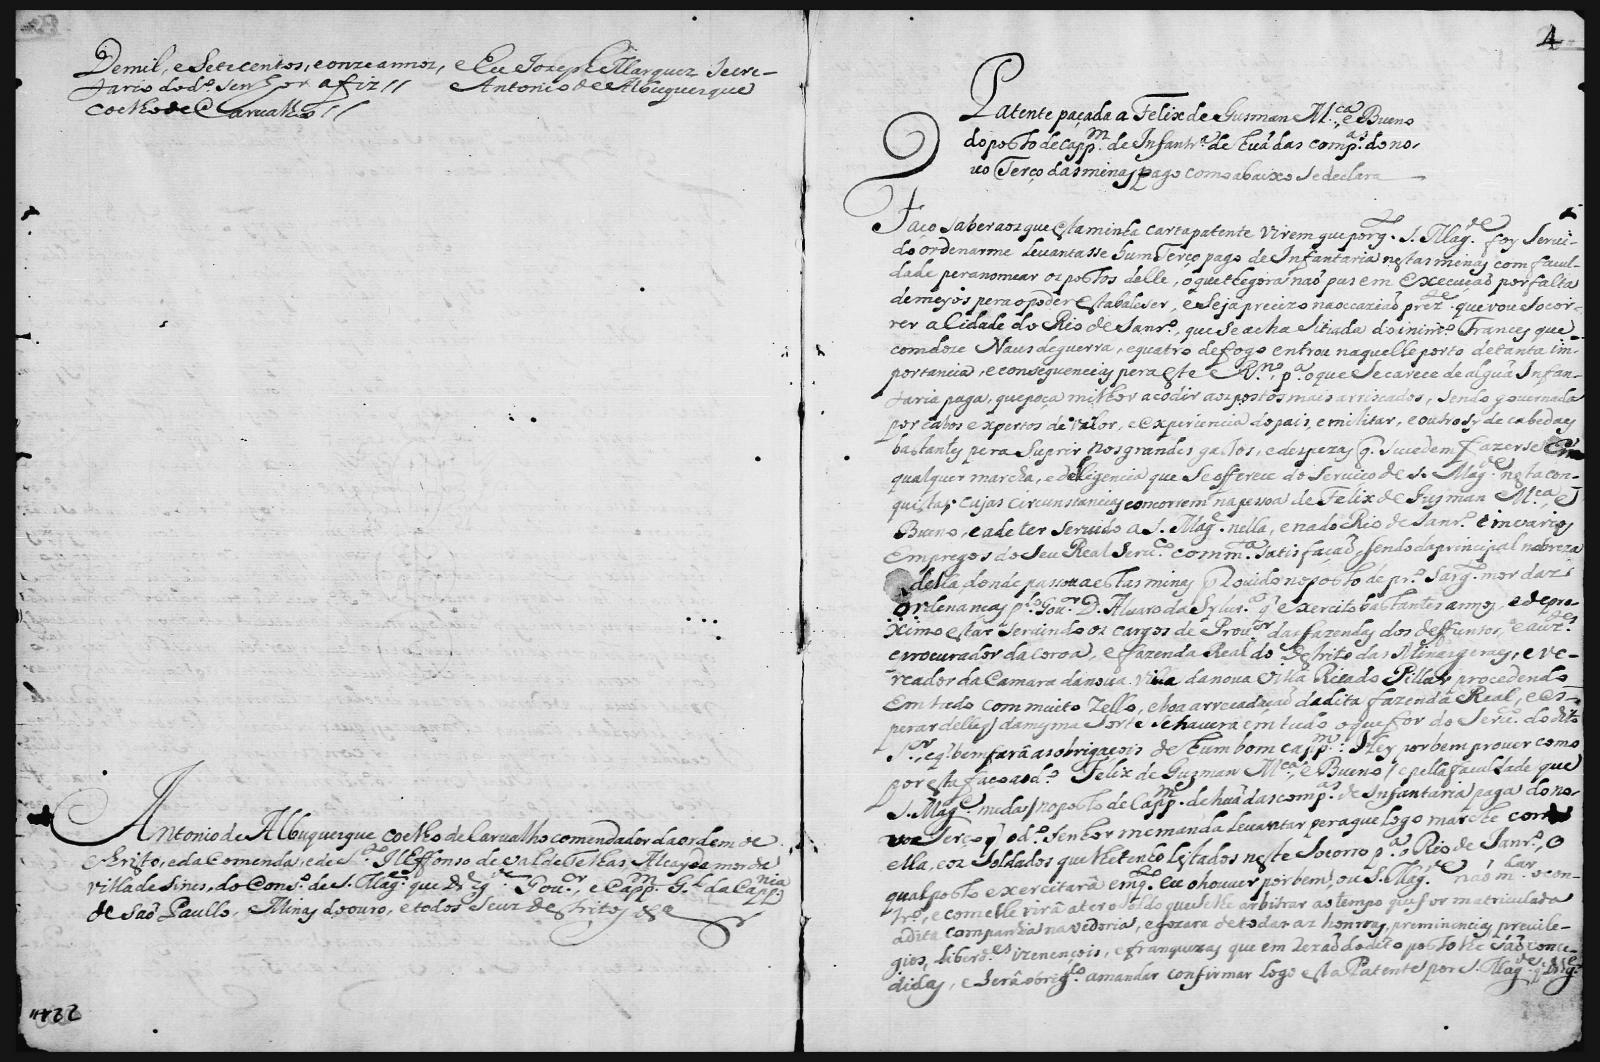 Demil, e Setecentos, e onze annos, e Eu Joseph Marques Secre-
tario do d.º Senhor a fiz // Antonio de Albuquerque
Coelho de Carualho //
Antonio de Albuquerque Coelho de Carualho comendador da ordem de
Christo, e da Comenda, e de S.to Illeffonso de Val de Telhas, Alcayde mor da
villa de Sines, do Cons.º de S. Mag.de que D.s g.de Gou.or, e Capp.m G.l da Cap.nia
de São Paullo, e Minas do ouro, e todos seus destritos &a
4
Patente paçada a Felix de Gusman M.ca e Bueno
do posto de Capp.m de Infantr.a de huã das comp.as do no-
uo Terço das minas pago como abaixo se declara
Faço saber aos que esta minha carta patente virem que porq.to S. Mag.de foy serui-
do ordenarme leuantasse hum Terço pago de Infantaria nestas minas com facul-
dade pera nomear os postos delle, o que thegora naõ pus em execuçaõ por falta
de meyos pera o poder estabaleser, e seja precizo na occaziaõ prez.te que vou socor-
rer a Cidade do Rio de Janr.º, que se acha sitiada do inim.º Frances que
com doze Naus de guerra, e quatro de fogo entrou naquelle porto de tanta im-
portancia, e consequencias pera este R.no, p.a o que se carece de alguã Infan-
taria paga, que poça milhor acodir aos postos mais arriscados, sendo gouernada
por cabos expertos de valor, e experiencia do pais, e militar, e outrosy de cabedaes
bastantes pera suprir nos grandes gastos, e despezas q. sucedem fazerse em
qualquer marcha, e deligencia que se offerece do seruiço de S. Mag.de nesta con-
quista; cujas circunstancias concorrem na pessoa de Felix de Gusman M.ca, e
Bueno, e a de ter seruido a S. Mag.e nella, e na do Rio de Janr.º em varios
empregos do seu Real seru.ço com m.ta satisfaçaõ, sendo da principal nobreza
della donde passou a estas minas prouido no posto de pr.º Sarg.to mor das
ordenanças p.lo Gou.or D. Aluaro da Sylur.a q exercitou bastantes annos, e de pro-
ximo estar seruindo os cargos de Prou.or das fazendas dos deffuntos, e auz.tes
e procurador da coroa, e fazenda Real do destrito das Minas geraes, e ve-
reador da Camara da noua villa da noua Villa Rica do Pillar procedendo
em tudo com muito zello, e boa arrecadaçaõ da dita fazenda Real, e es-
perar delle q da mesma sorte se hauerá em tudo o que for do seru.ço do dito
S.or, e q. bem fará as obrigaçois de hum bom capp.m: Hey por bem prouer como
por esta faço ao d.º Felix de Gusman M.ca, e Bueno / e pella faculdade que
S. Mag.e me da / no posto de Capp.m de huã das comp.as de Infantaria paga do no-
uo Terço q o d.º Senhor me manda leuantar pera que logo marche com
ella, e os soldados que lhe tenho listados neste socorro p.a o Rio de Janr.º, o
qual posto exercitará emq.to eu o houuer por bem, ou S. Mag.de naõ m.dar o con-
tr.º, e com elle virá a ter o soldo que se lhe arbitrar ao tempo que for matriculada
a dita companhia na vedoria, e gozara de todas as honras, preminencias, preuile-
gios, liberd.es izençois, e franquezas que em rezaõ do dito posto lhe saõ conce-
didas, e será obrig.do a mandar confirmar logo esta Patente por S. Mag.de q D.s g.e